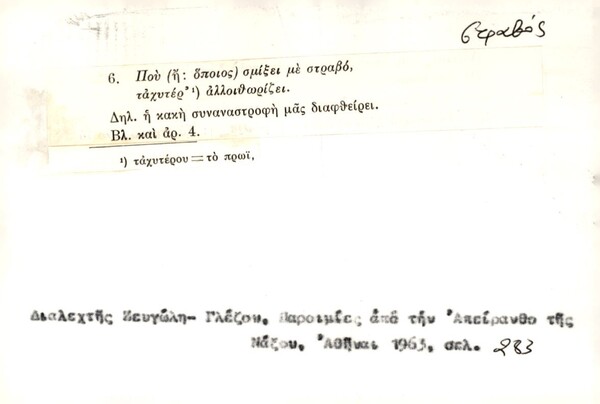 στραβός
6. Ποὺ (ἤ: ὅποιος) σμίξει μὲ στραβό,
τἀχυτέρ’¹) ἀλλοιθωρίζει.
Δηλ. ἡ κακὴ συναναστροφὴ μᾶς διαφθείρει.
Βλ. καὶ ἀρ. 4.
¹) τἀχυτέρου = τὸ πρωΐ,
Διαλεχτῆς Ζευγώλη- Γλέζου, Παροιμίες ἀπὸ τὴν Ἀπείρανθο τῆς
Νάξου, Ἀθῆναι 1963, σελ. 283